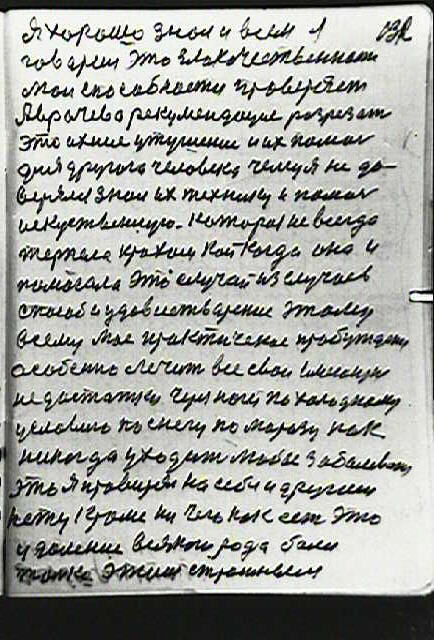 Я хорошо знал и всем 132
говорил это злокачественность
мои способности проверяет
Я врачево рекумендацие разрезат
это ихние утушение и их помощ
для другога человека чемуя не до-
верял знал их технику и помощ
искуственную. Которая не всегда
терпела крахом кой когда она и
помогала это случай из случаев
способ и удовлетварение этому
всему мое практическое пробуждение
особенно лечит все свои
недостатки чувством по холодному
условию по снегу по морозу как
никогда уходит любое заболевание
это я проверял на себе и другом
нету кроме ни чего как есть это
удаление всякой рода боли
только этими странным